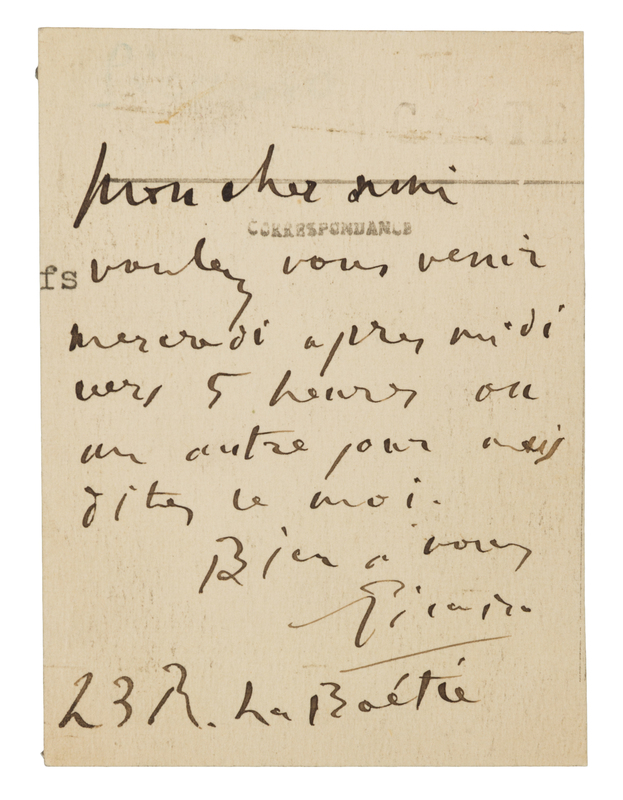 mon cher ami
CORRESPONDANCE
fs
voulez vous venir
mercredi apres midi
vers 5 heures ou
un autre jour mais
dites le moi.
Bien a vous
Picasso
23 R. La Boétie